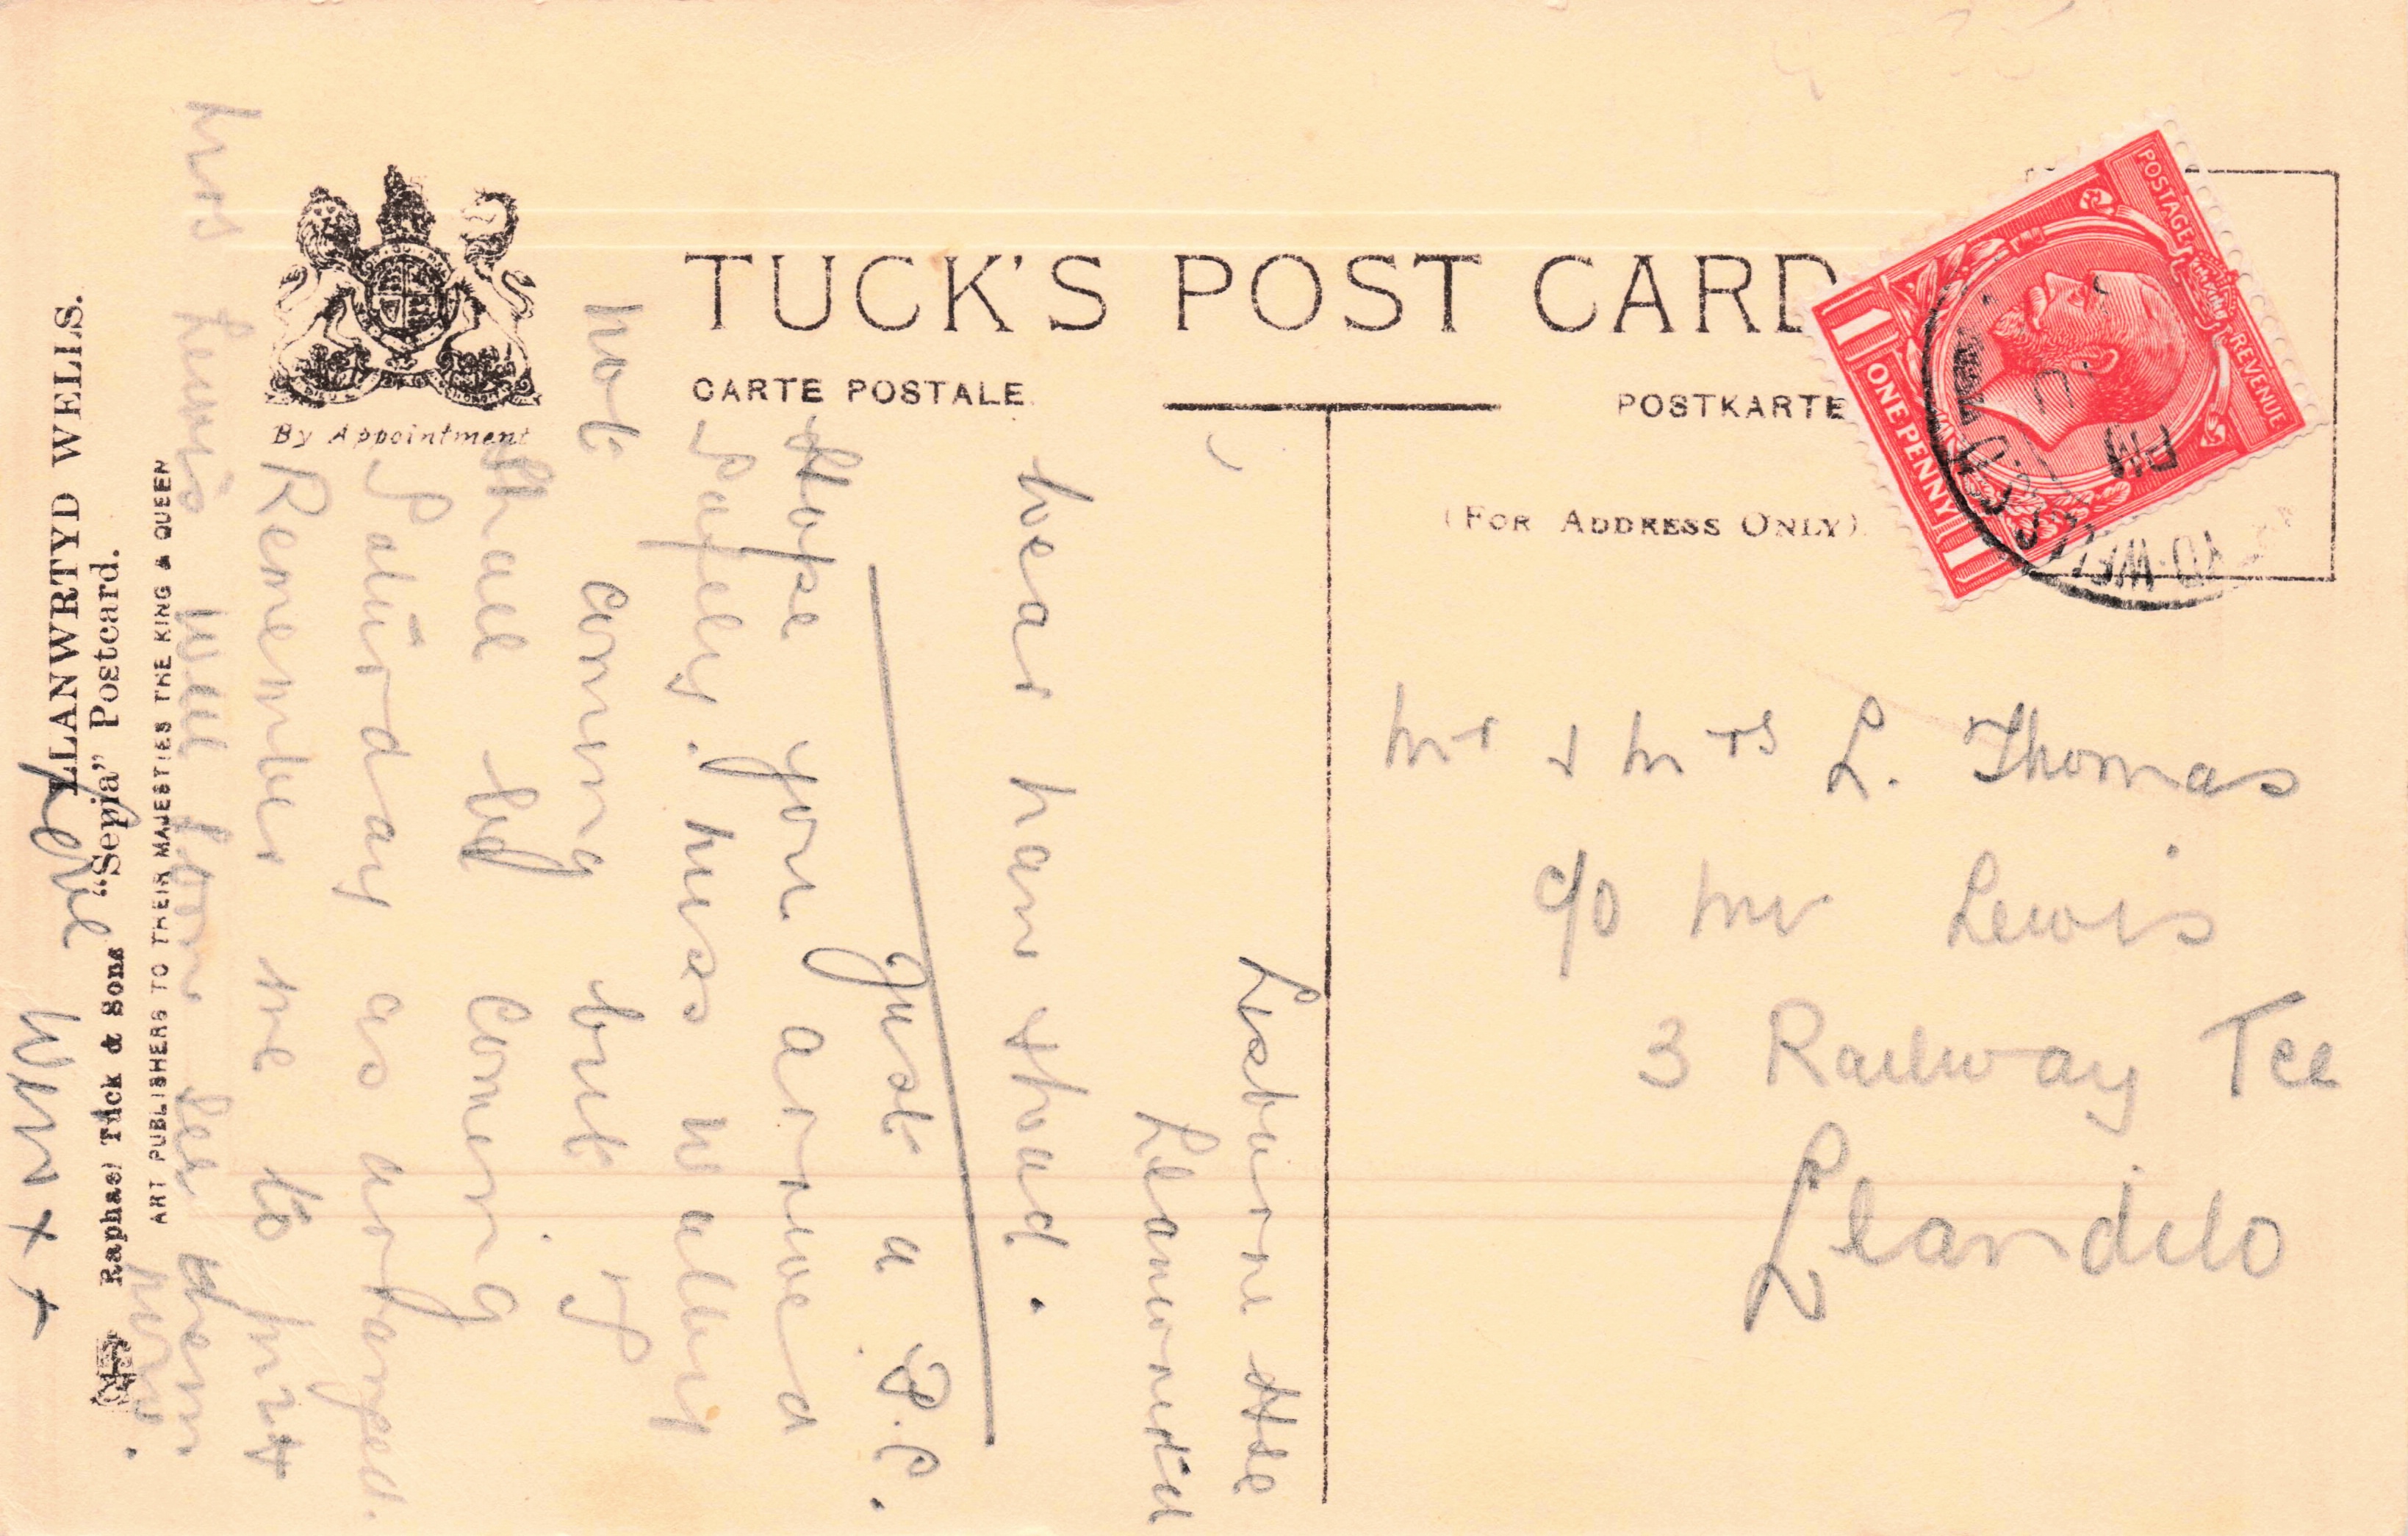 TUCK'S POST CARD
CARTE POSTALE
POSTKARTE
By Appointment
(FOR ADDRESS ONLY).
POSTAGE REVENUE
1 ONE PENNY 1
PM
Mr & Mrs L. Thomas
c/o Mr Lewis
3 Railway Tce
Llandilo
Lisburne Hse
Llanwrtyd
Dear Mam & Dad.
Just a P.C.
Hope you arrived
safely. Miss Wally
not coming but if
shall be coming
Saturday as arranged.
Remember me to Mr &
Mrs Lewis will
Love
Win x x
LLANWRTYD WELLS.
Raphael Tuck & Sons "Sepia" Postcard.
ART PUBLISHERS TO THEIR MAJESTIES THE KING & QUEEN